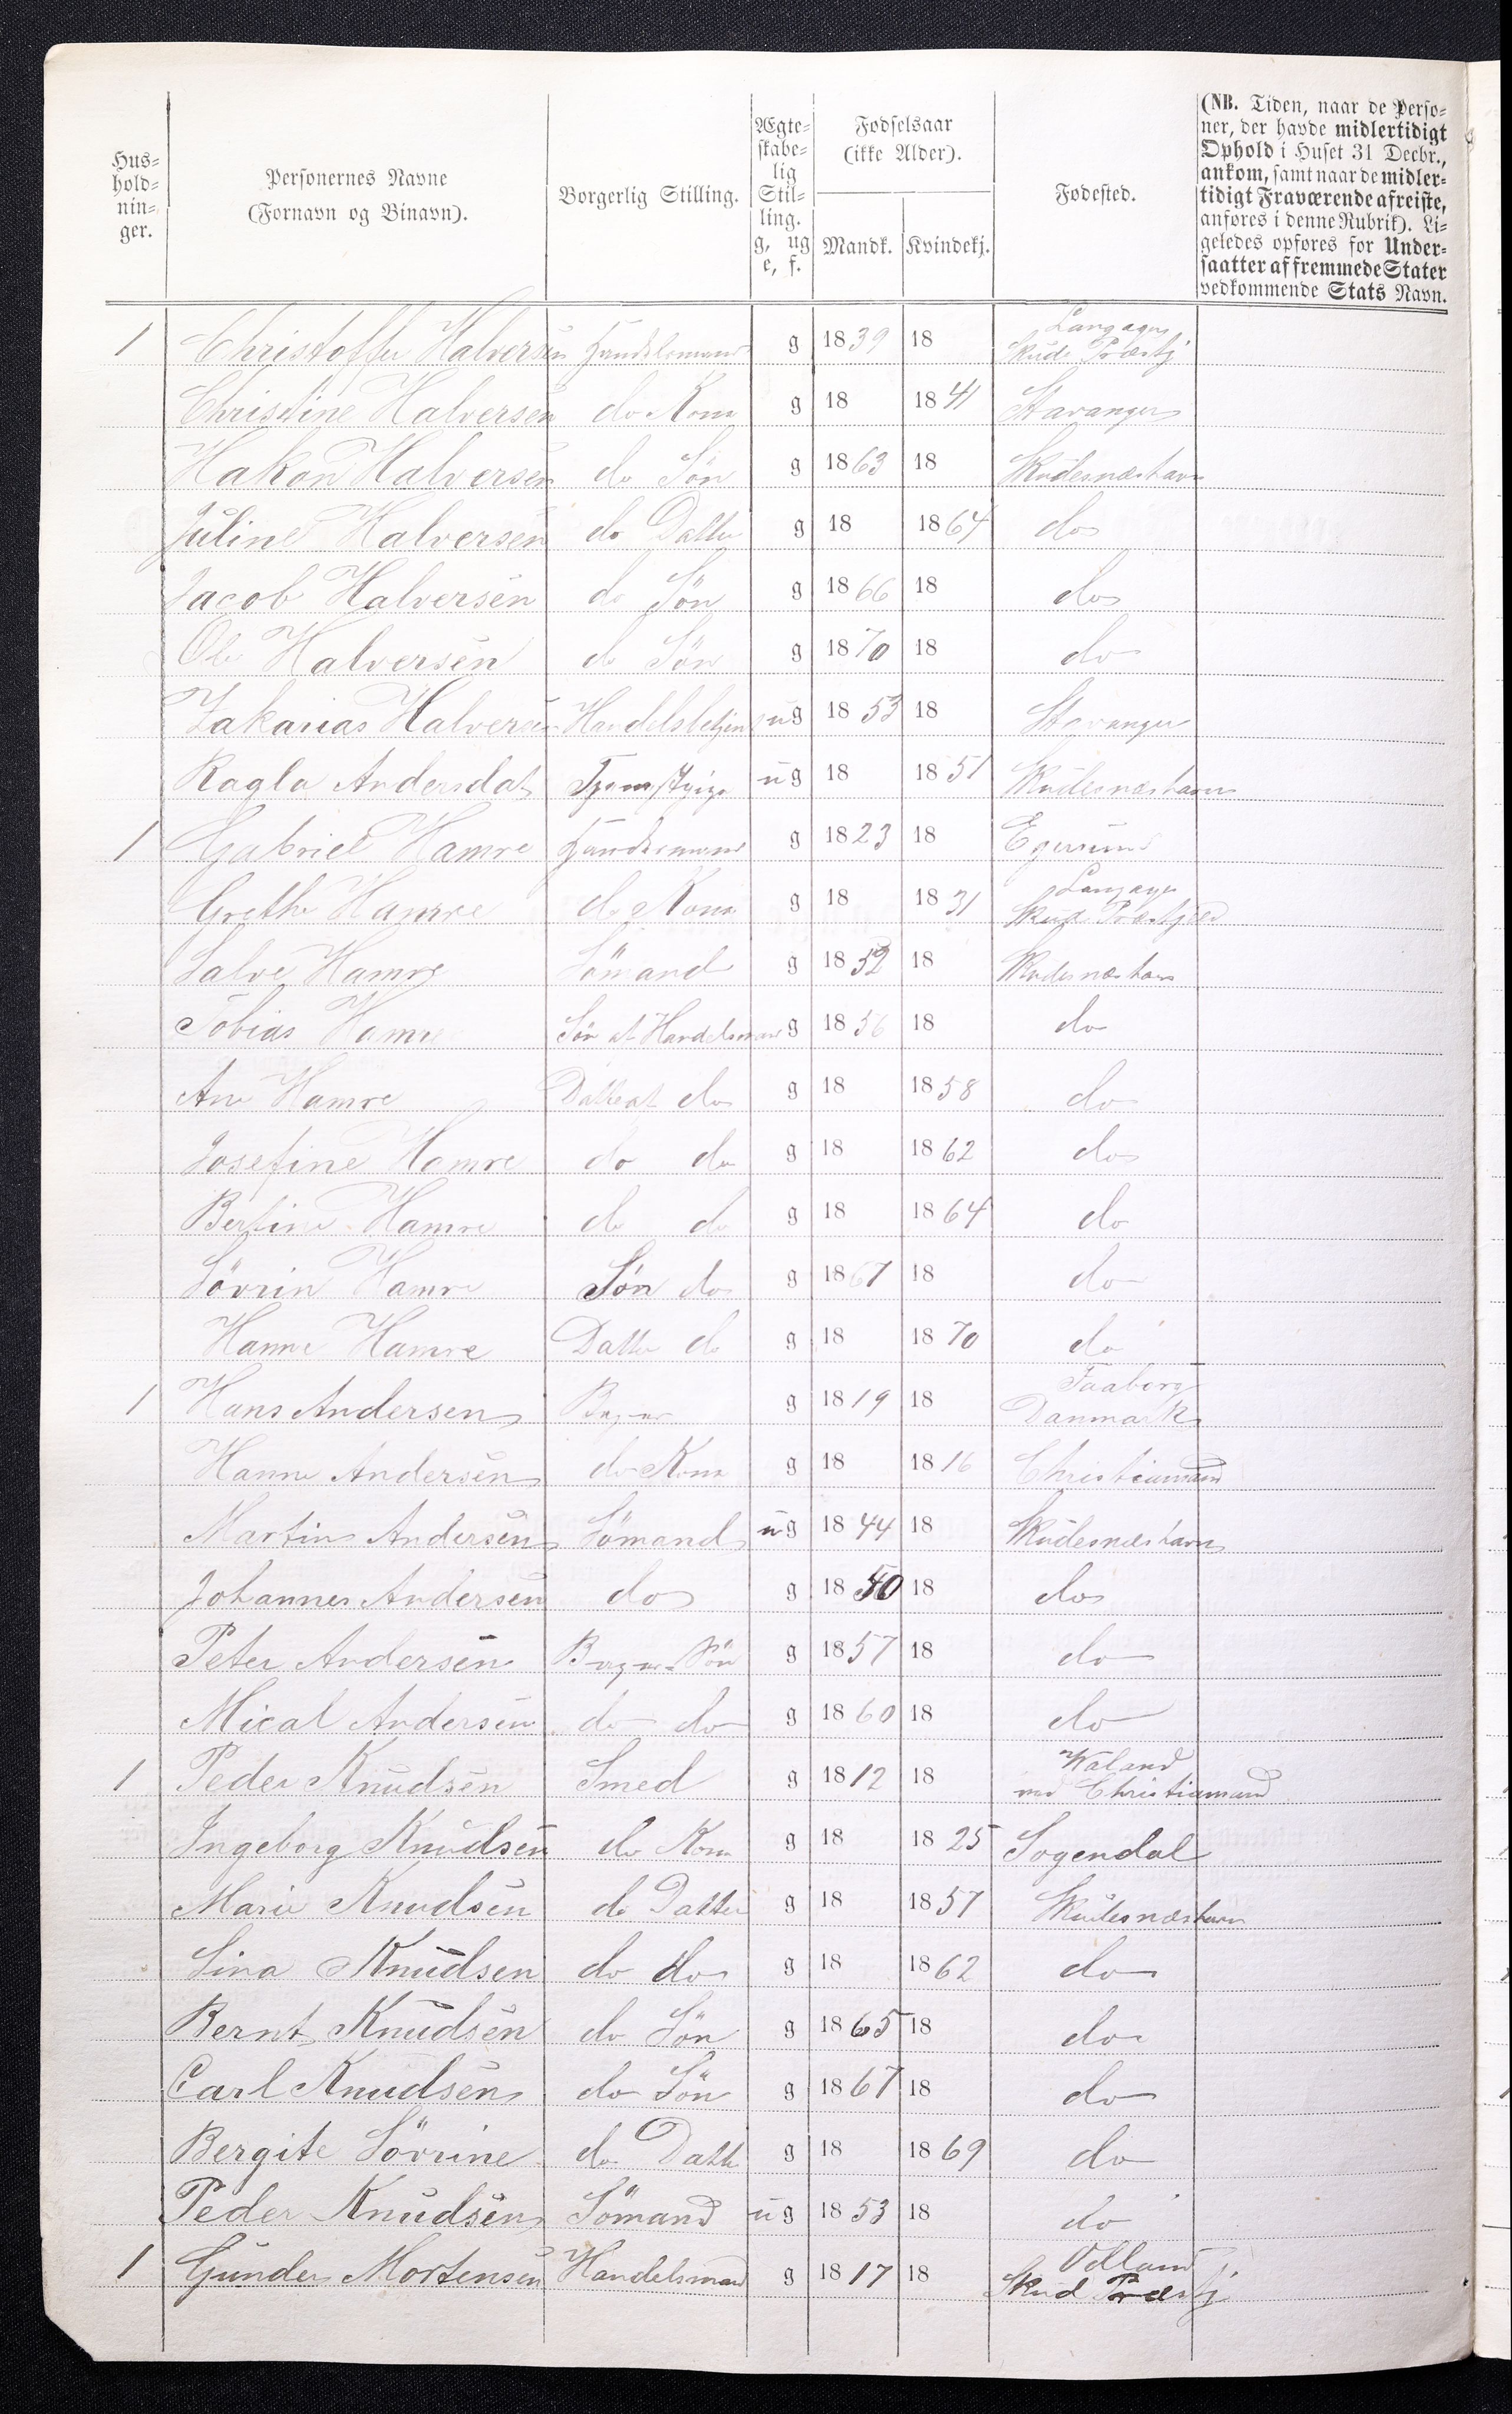 Hus-
hold-
nin-
ger.
Personernes Navne
(Fornavn og Binavn).
Borgerlig Stilling.
Ægte-
skabe-
lig
Stil-
ling.
g, ug
e, f.
Fødselsaar
(ikke Alder).
Mandk. Kvindekj.
Fødested.
(NB. Tiden, naar de Perso-
ner, der havde midlertidigt
Ophold i Huset 31 Decbr.,
ankom, samt naar de midler-
tidigt Fraværende afreiste,
anføres i denne Rubrik). Li-
geledes opføres for Under-
saatter af fremmede Stater
vedkommende Stats Navn.
1 Christoffer Halversen Handelsmand g 1839 18 Langager
Skude Præstgj
Christine Halversen do Kone g 18 1841 Stavanger
Hakon Halversen do Sön g 1863 18 Skudesnæshavn
Juline Halversen do Datter g 18 1864 do
Jacob Halversen do Sön g 1866 18 do
Ole Halversen do Sön g 1870 18 do
Zakarias Halversen Handelsbetjent ug 1853 18 Stavanger
Ragla Andersdat ug 18 1851 Skudesnæshavn
1 Gabriel Hamre Handelsmand g 1823 18 Egersund
Grethe Hamre do Kone g 18 1831 Langager
Skud Præstgjeld
Salve Hamre Sömand g 1852 18 Skudesnæshavn
Tobias Hamre Sön af Handelsmand g 1856 18 do
Ane Hamre Datter af do g 18 1858 do
Josefine Hamre do do g 18 1862 do
Bertine Hamre do do g 18 1864 do
Sövrin Hamre Sön do g 1867 18 do
Hanne Hamre Datter do g 18 1870 do
1 Hans Andersen Bager g 1819 18 Faaborg
Danmark
Hanne Andersen do Kone g 18 1816 Christiansand
Martin Andersen Sömand ug 1844 18 Skudesnæshavn
Johannes Andersen do g 1850 18 do
Peter Andersen Bager Sön g 1857 18 do
Mical Andersen do do g 1860 18 do
1 Peder Knudsen Smed g 1812 18
ved Christiansand
Ingeborg Knudsen do Kone g 18 1825 Sogendal
Marie Knudsen do Datter g 18 1857 Skudesnæshavn
Sina Knudsen do do g 18 1862 do
Bernt Knudsen do Sön g 1865 18 do
Carl Knudsen do Sön g 1867 18 do
Bergite Sövrine do Datter g 18 1869 do
Peder Knudsen Sömand ug 1853 18 do
1 Gunder Mortensen Handelsmand g 1817 18
Skud Præstgj